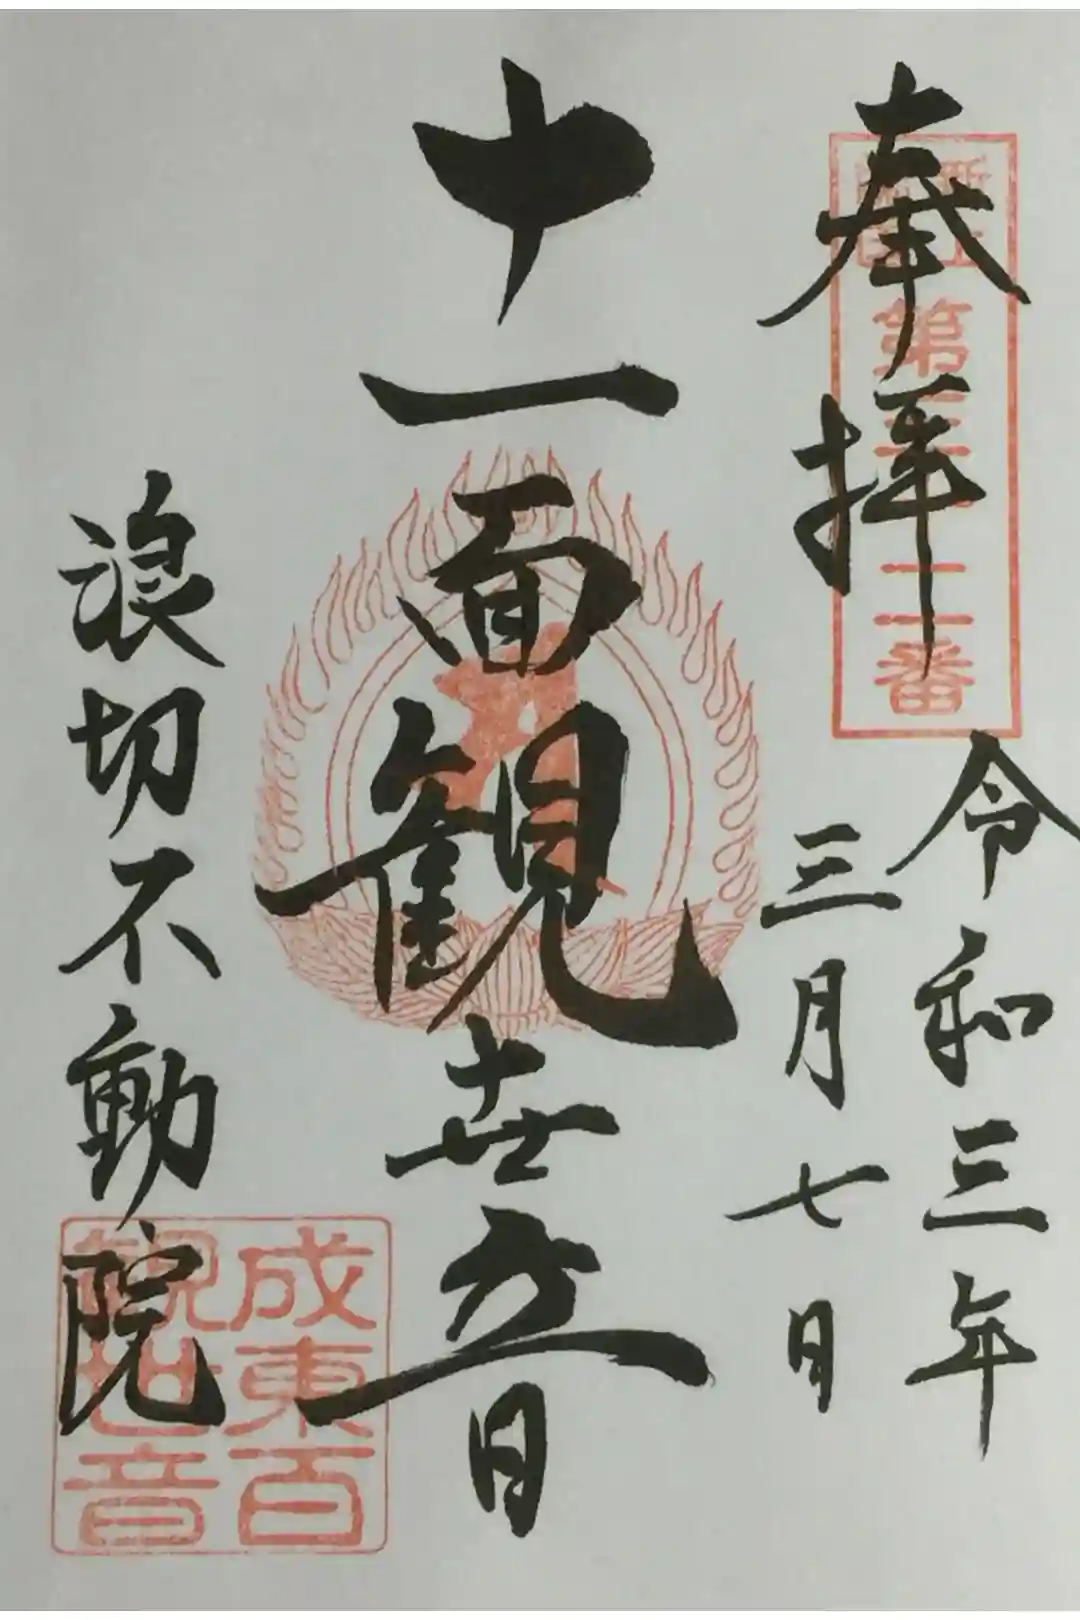 奉拝
令和三年
三月七日
十一面観世音
浪切不動院
第三十二番
成東百
観世音